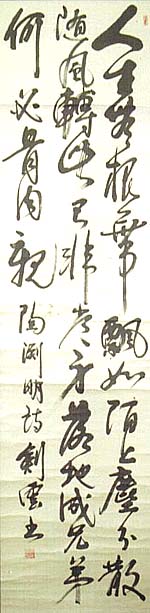 人生無根蒂飄如陌上塵分散
隨風轉此已非常身落地成兄弟
何必骨肉親陶淵明詩劍雲書